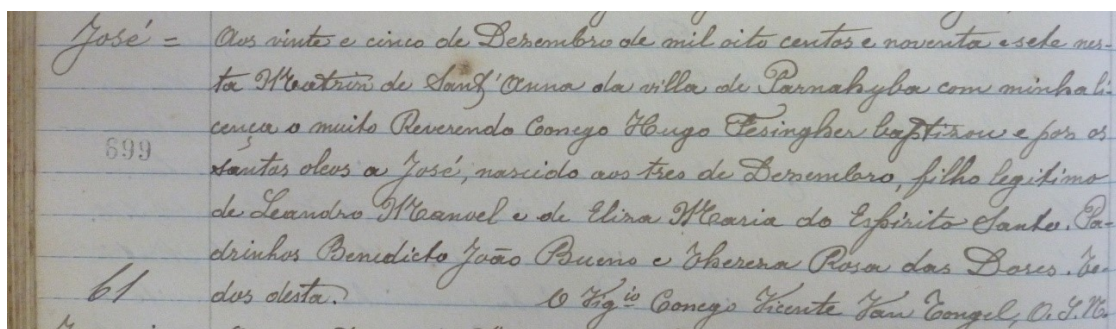 José =
Aos vinte e cinco de Dezembro de mil oito centos e noventa e sete nes-
ta Matriz de Sant'Anna da villa de Parnahyba com minha li-
cença o muito Reverendo Conego Hugo Fesingher baptizou e pos os
699
santos oleos a José, nascido aos tres de Dezembro, filho legitimo
de Leandro Manoel e de Eliza Maria do Espirito Santo. Pa-
drinhos Benedicto João Bueno e Thereza Rosa das Dores. To-
61
dos desta. O Vigio Conego Vicente Van Tongel, O.